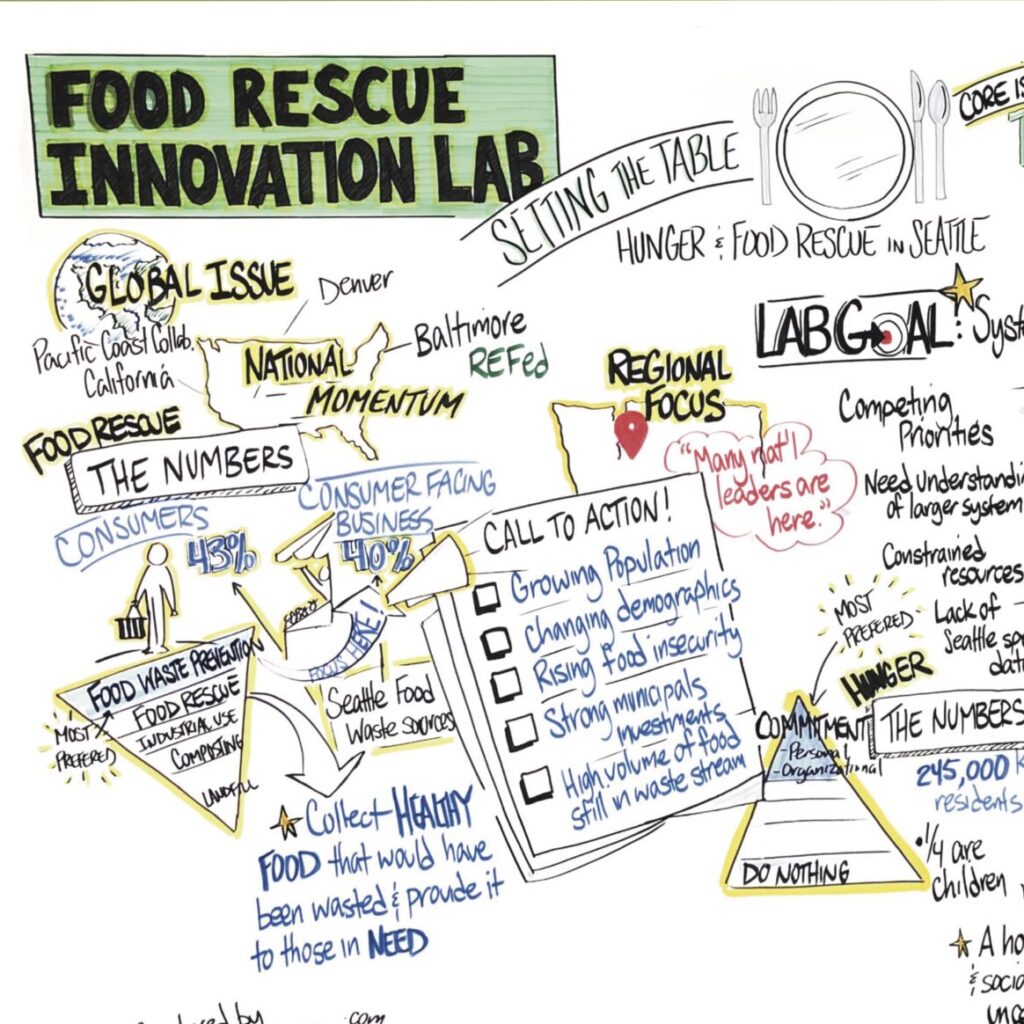 FOOD RESCUE
INNOVATION LAB
SETTING THE TABLE
HUNGER & FOOD RESCUE IN SEATTLE
CORE IS
GLOBAL ISSUE
Denver
Pacific Coast Collab.
California
NATIONAL
MOMENTUM
Baltimore
REFed
REGIONAL
FOCUS
"Many nat'l
leaders are
here."
LAB GOAL: Syst
Competing
Priorities
Need Understandin
of larger system
Constrained
resources
Lack of
Seattle sp
dat
FOOD RESCUE
THE NUMBERS
CONSUMERS
43%
CONSUMER FACING
BUSINESS
40%
FOCUS HERE!
FOOD WASTE PREVENTION
FOOD RESCUE
INDUSTRIAL USE
COMPOSING
LANDFILL
MOST
PREFERED
Seattle Food
Waste sources
Collect HEALTHY
FOOD that would have
been wasted & provide it
to those in NEED
CALL TO ACTION!
Growing Population
Changing demographics
Rising food insecurity
Strong municipals
investments
High volume of food
still in waste stream
MOST
PREFERED
HUNGER
THE NUMBERS
COMMITMENT
- Personal
- Organizational
DO NOTHING
245,000 K
residents
• 1/4 are
children
A ho
& socia
unce
by
.com